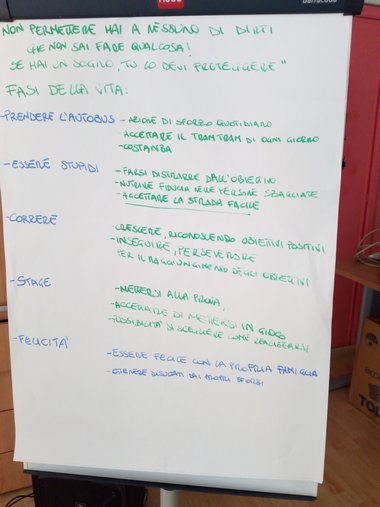 NON PERMETTERE MAI A NESSUNO DI DIRTI
CHE NON SAI FARE QUALCOSA!
SE HAI UN SOGNO, TU LO DEVI PROTEGGERE"
FASI DELLA VITA:
-PRENDERE L'AUTOBUS
-AZIONE DI SFORZO QUOTIDIANO
-ACCETTARE IL TRAM TRAM DI OGNI GIORNO
-COSTANZA
-ESSERE STUPIDI
-FARSI DISTRARRE DALL'OBIETTIVO
-NUTRIRE FIDUCIA NELLE PERSONE SBAGLIATE
-ACCETTARE LA STRADA FACILE
-CORRERE
-CRESCERE, RICONOSCENDO OBIETTIVI POSITIVI
-INSEGUIRE, PERSEVERARE
PER IL RAGGIUNGIMENTO DEGLI OBIETTIVI
-STAGE
-METTERSI ALLA PROVA,
-ACCETTARE DI METTERSI IN GIOCO
-POSSIBILITA' DI SCEGLIERE COME REALIZZARSI
-FELICITA'
-ESSERE FELICE CON LA PROPRIA FAMIGLIA
-OTTENERE RISULTATI DAI PROPRI SFORZI